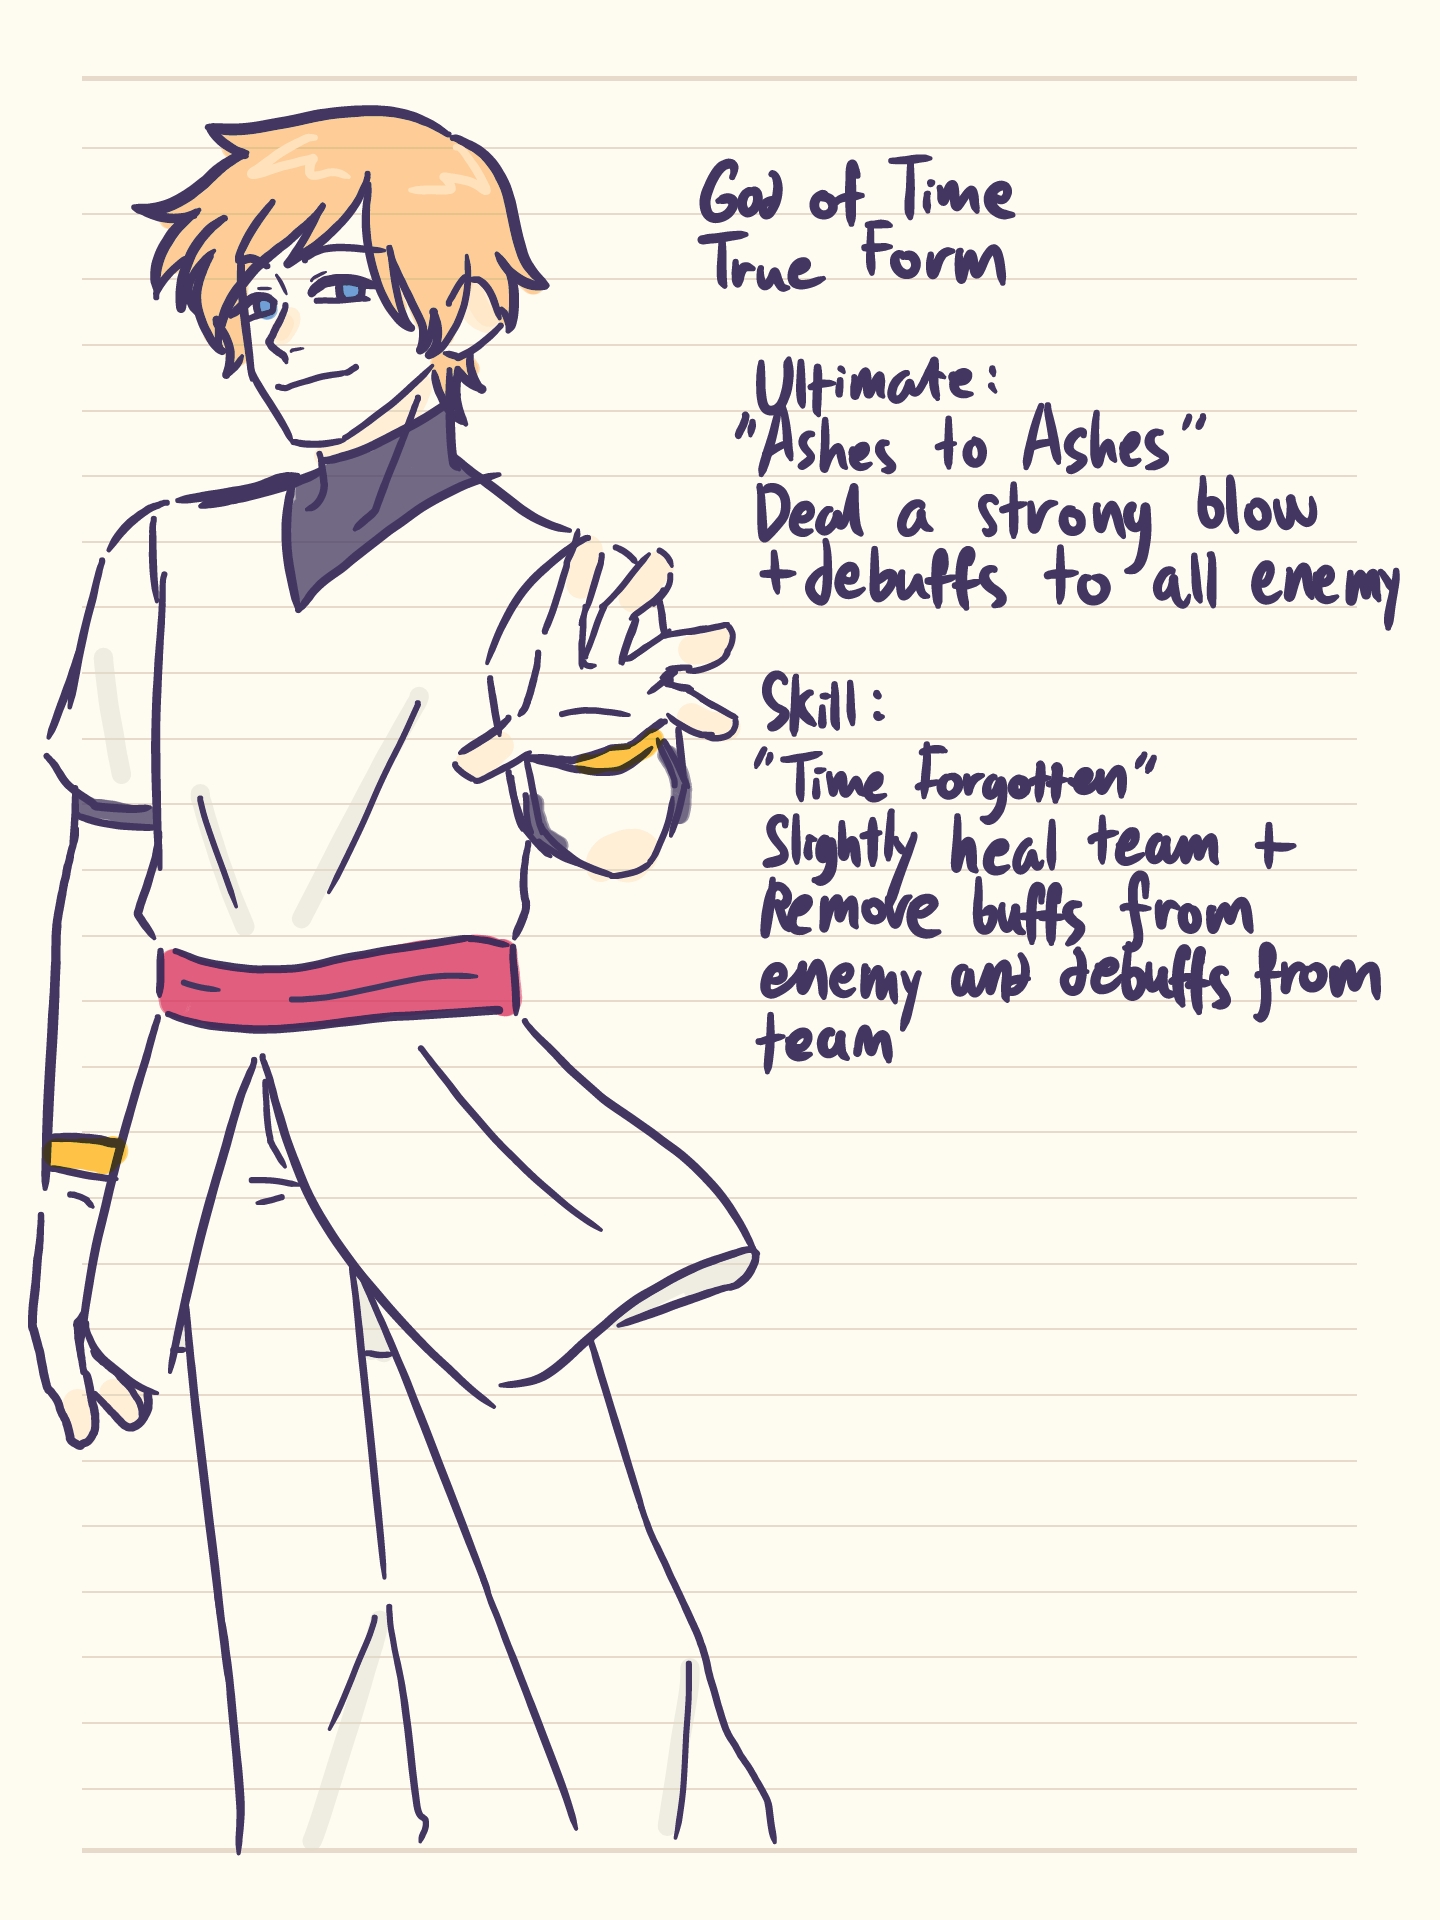 God of Time
True Form
Ultimate:
"Ashes to Ashes"
Deal a strong blow
+debuffs to all enemy
Skill:
"Time Forgotten"
Slightly heal team +
Remove buffs from
enemy and debuffs from
team